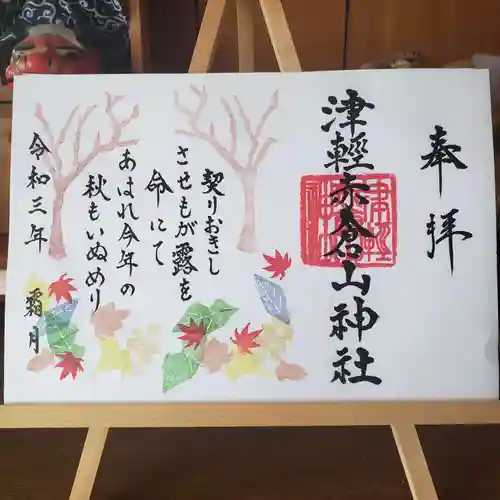 奉拝
津輕赤倉山神社
契りおきし
させもが露を
命にて
あはれ今年の
秋もいぬめり
令和三年 霜月